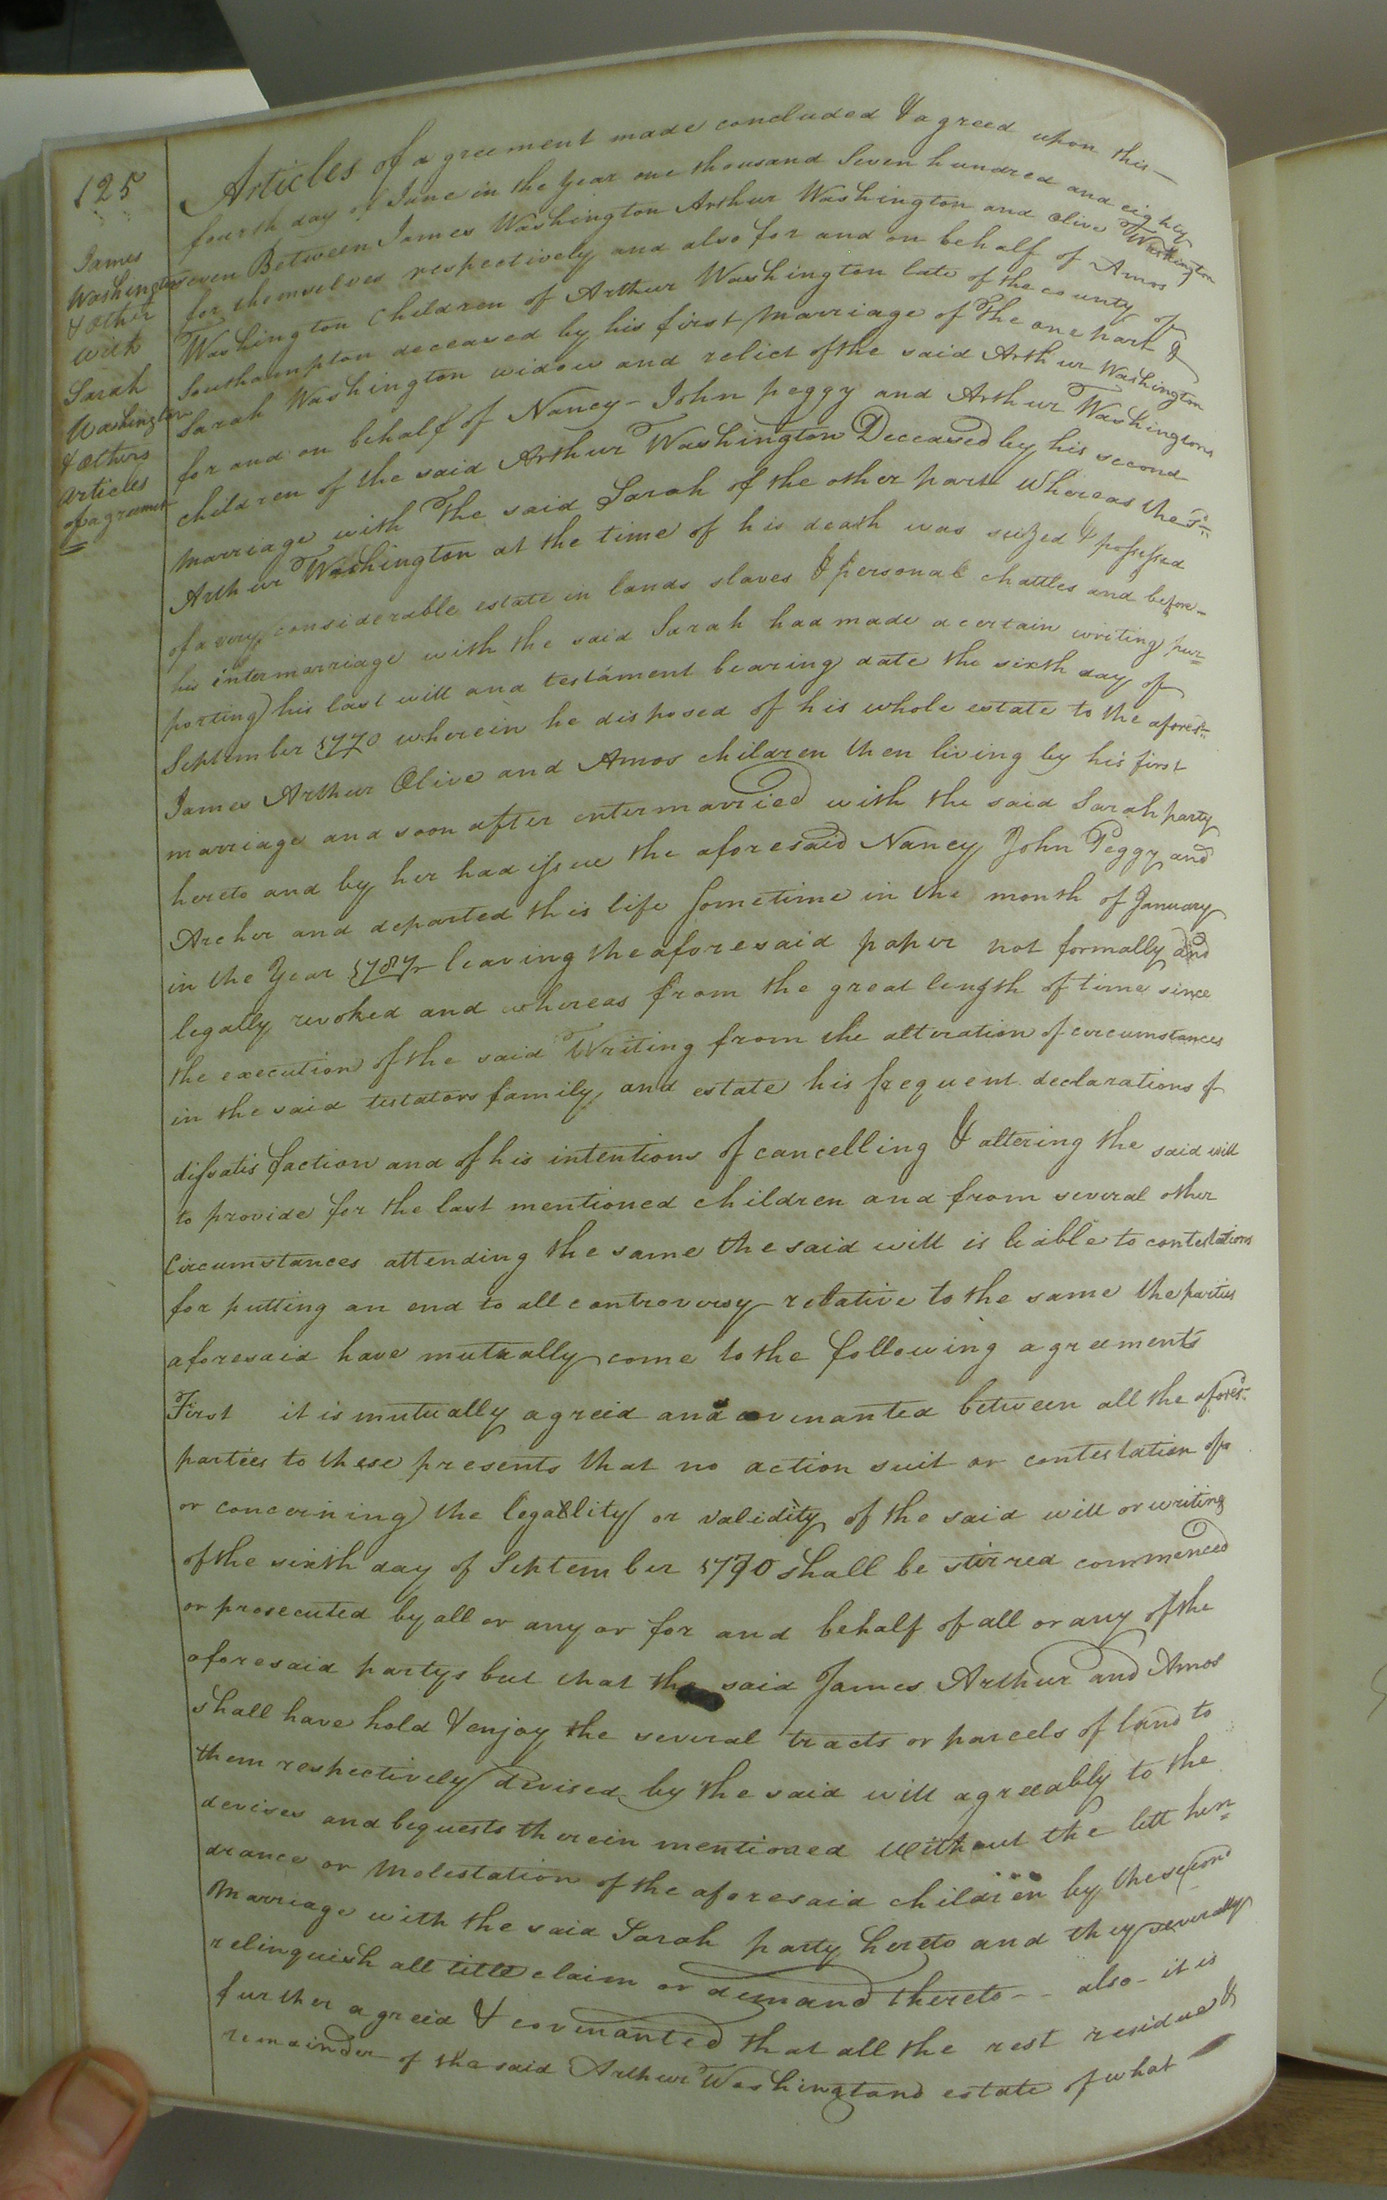 125
James
Washington
& other
with
Sarah
Washington
& others
articles
of agreement
Articles of agreement made concluded & agreed upon this
fourth day of June in the year one thousand seven hundred and eighty
seven Between James Washington Arthur Washington and Olive Washington
for themselves respectively and also for and on behalf of Amos
Washington children of Arthur Washington late of the county of
Southampton deceased by his first marriage of the one part &
Sarah Washington widow and relict of the said Arthur Washington
for and on behalf of Nancy - John peggy and Arthur Washingtons
children of the said Arthur Washington Deceased by his second
marriage with the said Sarah of the other part Whereas the sd
Arthur Washington at the time of his death was seized & possessed
of a very considerable estate in lands slaves & personal chattles and before
his intermarriage with the said Sarah had made a certain writing pur=
porting his last will and testament bearing date the sixth day of
September 1770 wherein he disposed of his whole estate to the aforesd
James Arthur Olive and Amos children then living by his first
marriage and soon after entermarried with the said Sarah party
hereto and by her had issue the aforesaid Nancy John Peggy and
Archer and departed this life sometime in the month of January
in the Year 1787 leaving the aforesaid paper not formally and
legally revoked and whereas from the great length of time since
the execution of the said Writing from the alteration of circumstances
in the said testators family and estate his frequent declarations of
dissatisfaction and of his intentions of cancelling & altering the said will
to provide for the last mentioned children and from several other
Circumstances attending the same the said will is liable to contestations
for putting an end to all controversy relative to the same the parties
aforesaid have mutually come to the following agreements
First it is mutually agreed and covenanted between all the aforesd
parties to these presents that no action suit or contestation of
or concerning the legallity or validity of the said will or writing
of the sixth day of September 1770 shall be stirred commenced
or prosecuted by all or any or for and behalf of all or any of the
aforesaid partys but that the said James Arthur and Amos
shall have hold & enjoy the several tracts or parcels of land to
them respectively devised by the said will agreeably to the
devises and bequests therein mentioned without the lett hin=
drance or Molestation of the aforesaid children by the second
Marriage with the said Sarah party hereto and they severally
relinquish all title claim or demand thereto - - also - it is
further agreed & covenanted that all the rest residue &
remainder of the said Arthur Washingtons estate of what